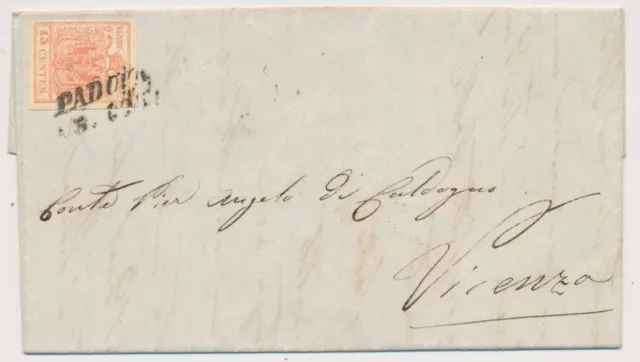 15 CENTES
PADOVA
Conte Pier Angelo di Caldogno
Vicenza